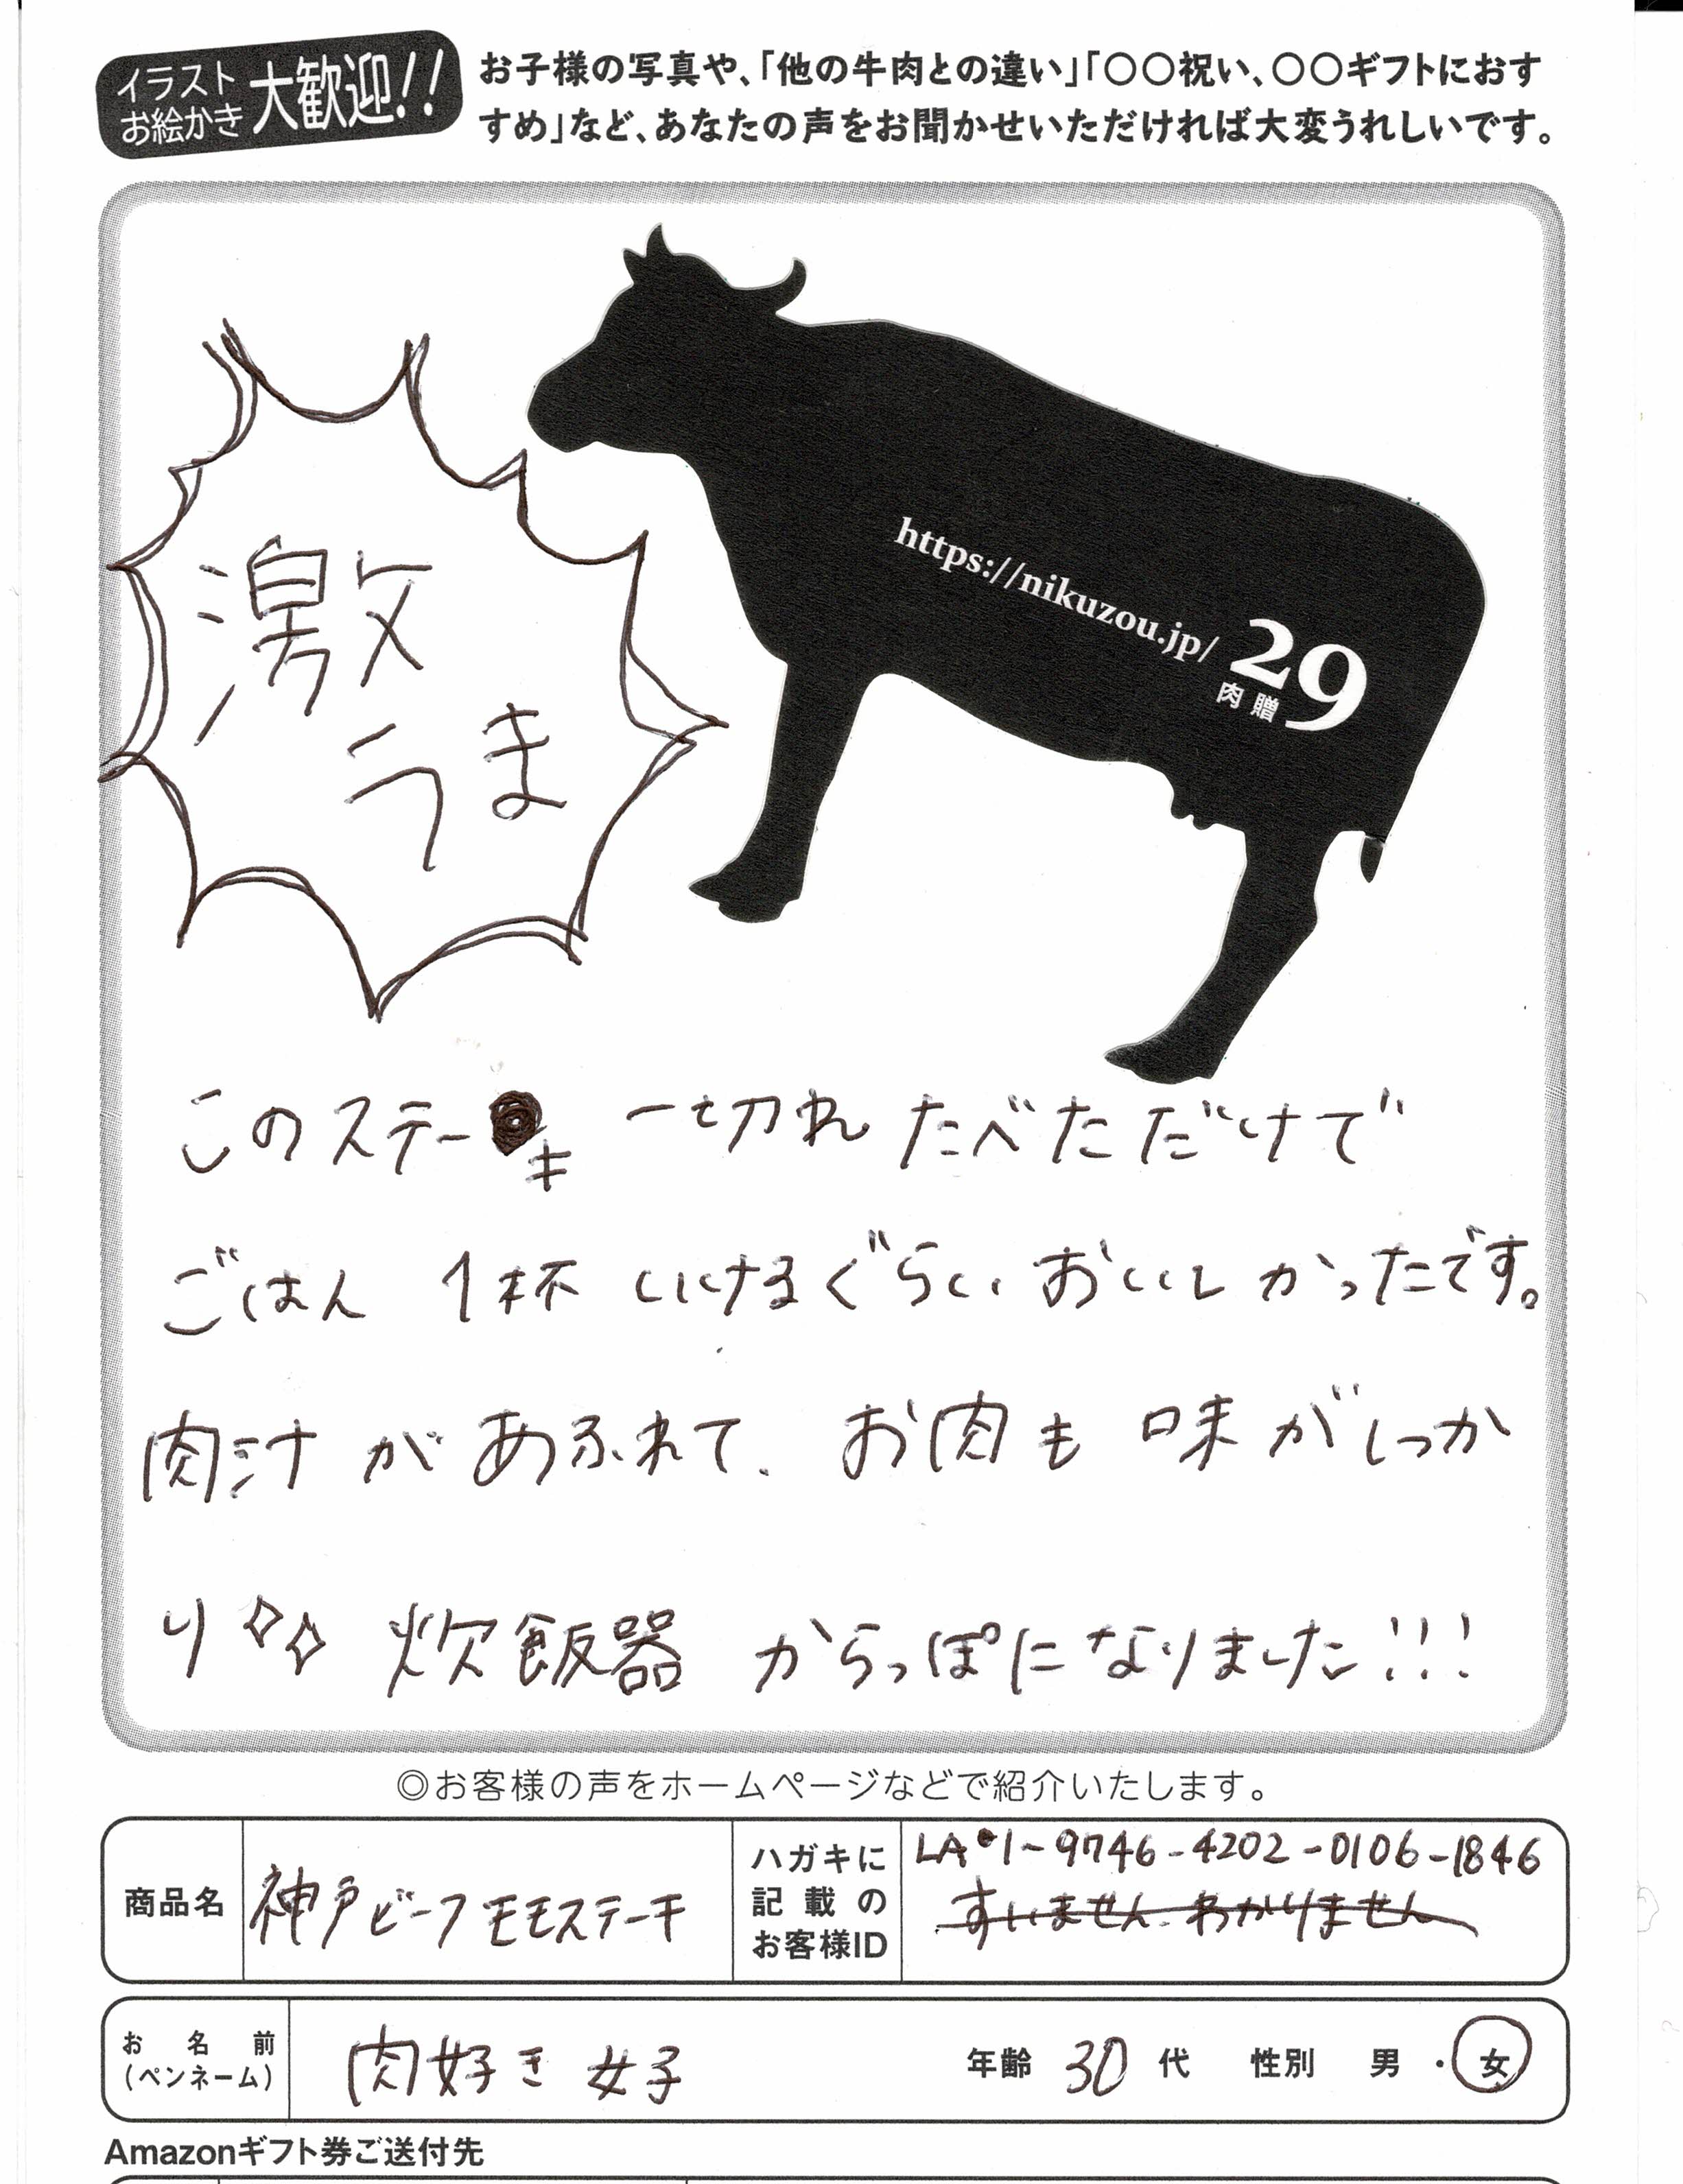 イラスト
お絵かき
大歓迎!!
お子様の写真や、「他の牛肉との違い」「〇〇祝い、〇〇ギフトにおす
すめ」など、あなたの声をお聞かせいただければ大変うれしいです。
https://nikuzou.jp/
29
肉贈
激
うま
このステーキ 一切れ たべただけで
ごはん 1杯 いけるぐらい おいしかったです。
肉汁が あふれて、お肉も 味がしっか
り 炊飯器 からっぽになりました!!!
◎お客様の声をホームページなどで紹介いたします。
商品名
神戸ビーフモモステーキ
ハガキに
記載の
お客様ID
LA1-9746-4202-0106-1846
すいません、わかりません
お名前
(ペンネーム)
肉好き女子
年齢 30 代 性別 男・女
Amazonギフト券ご送付先